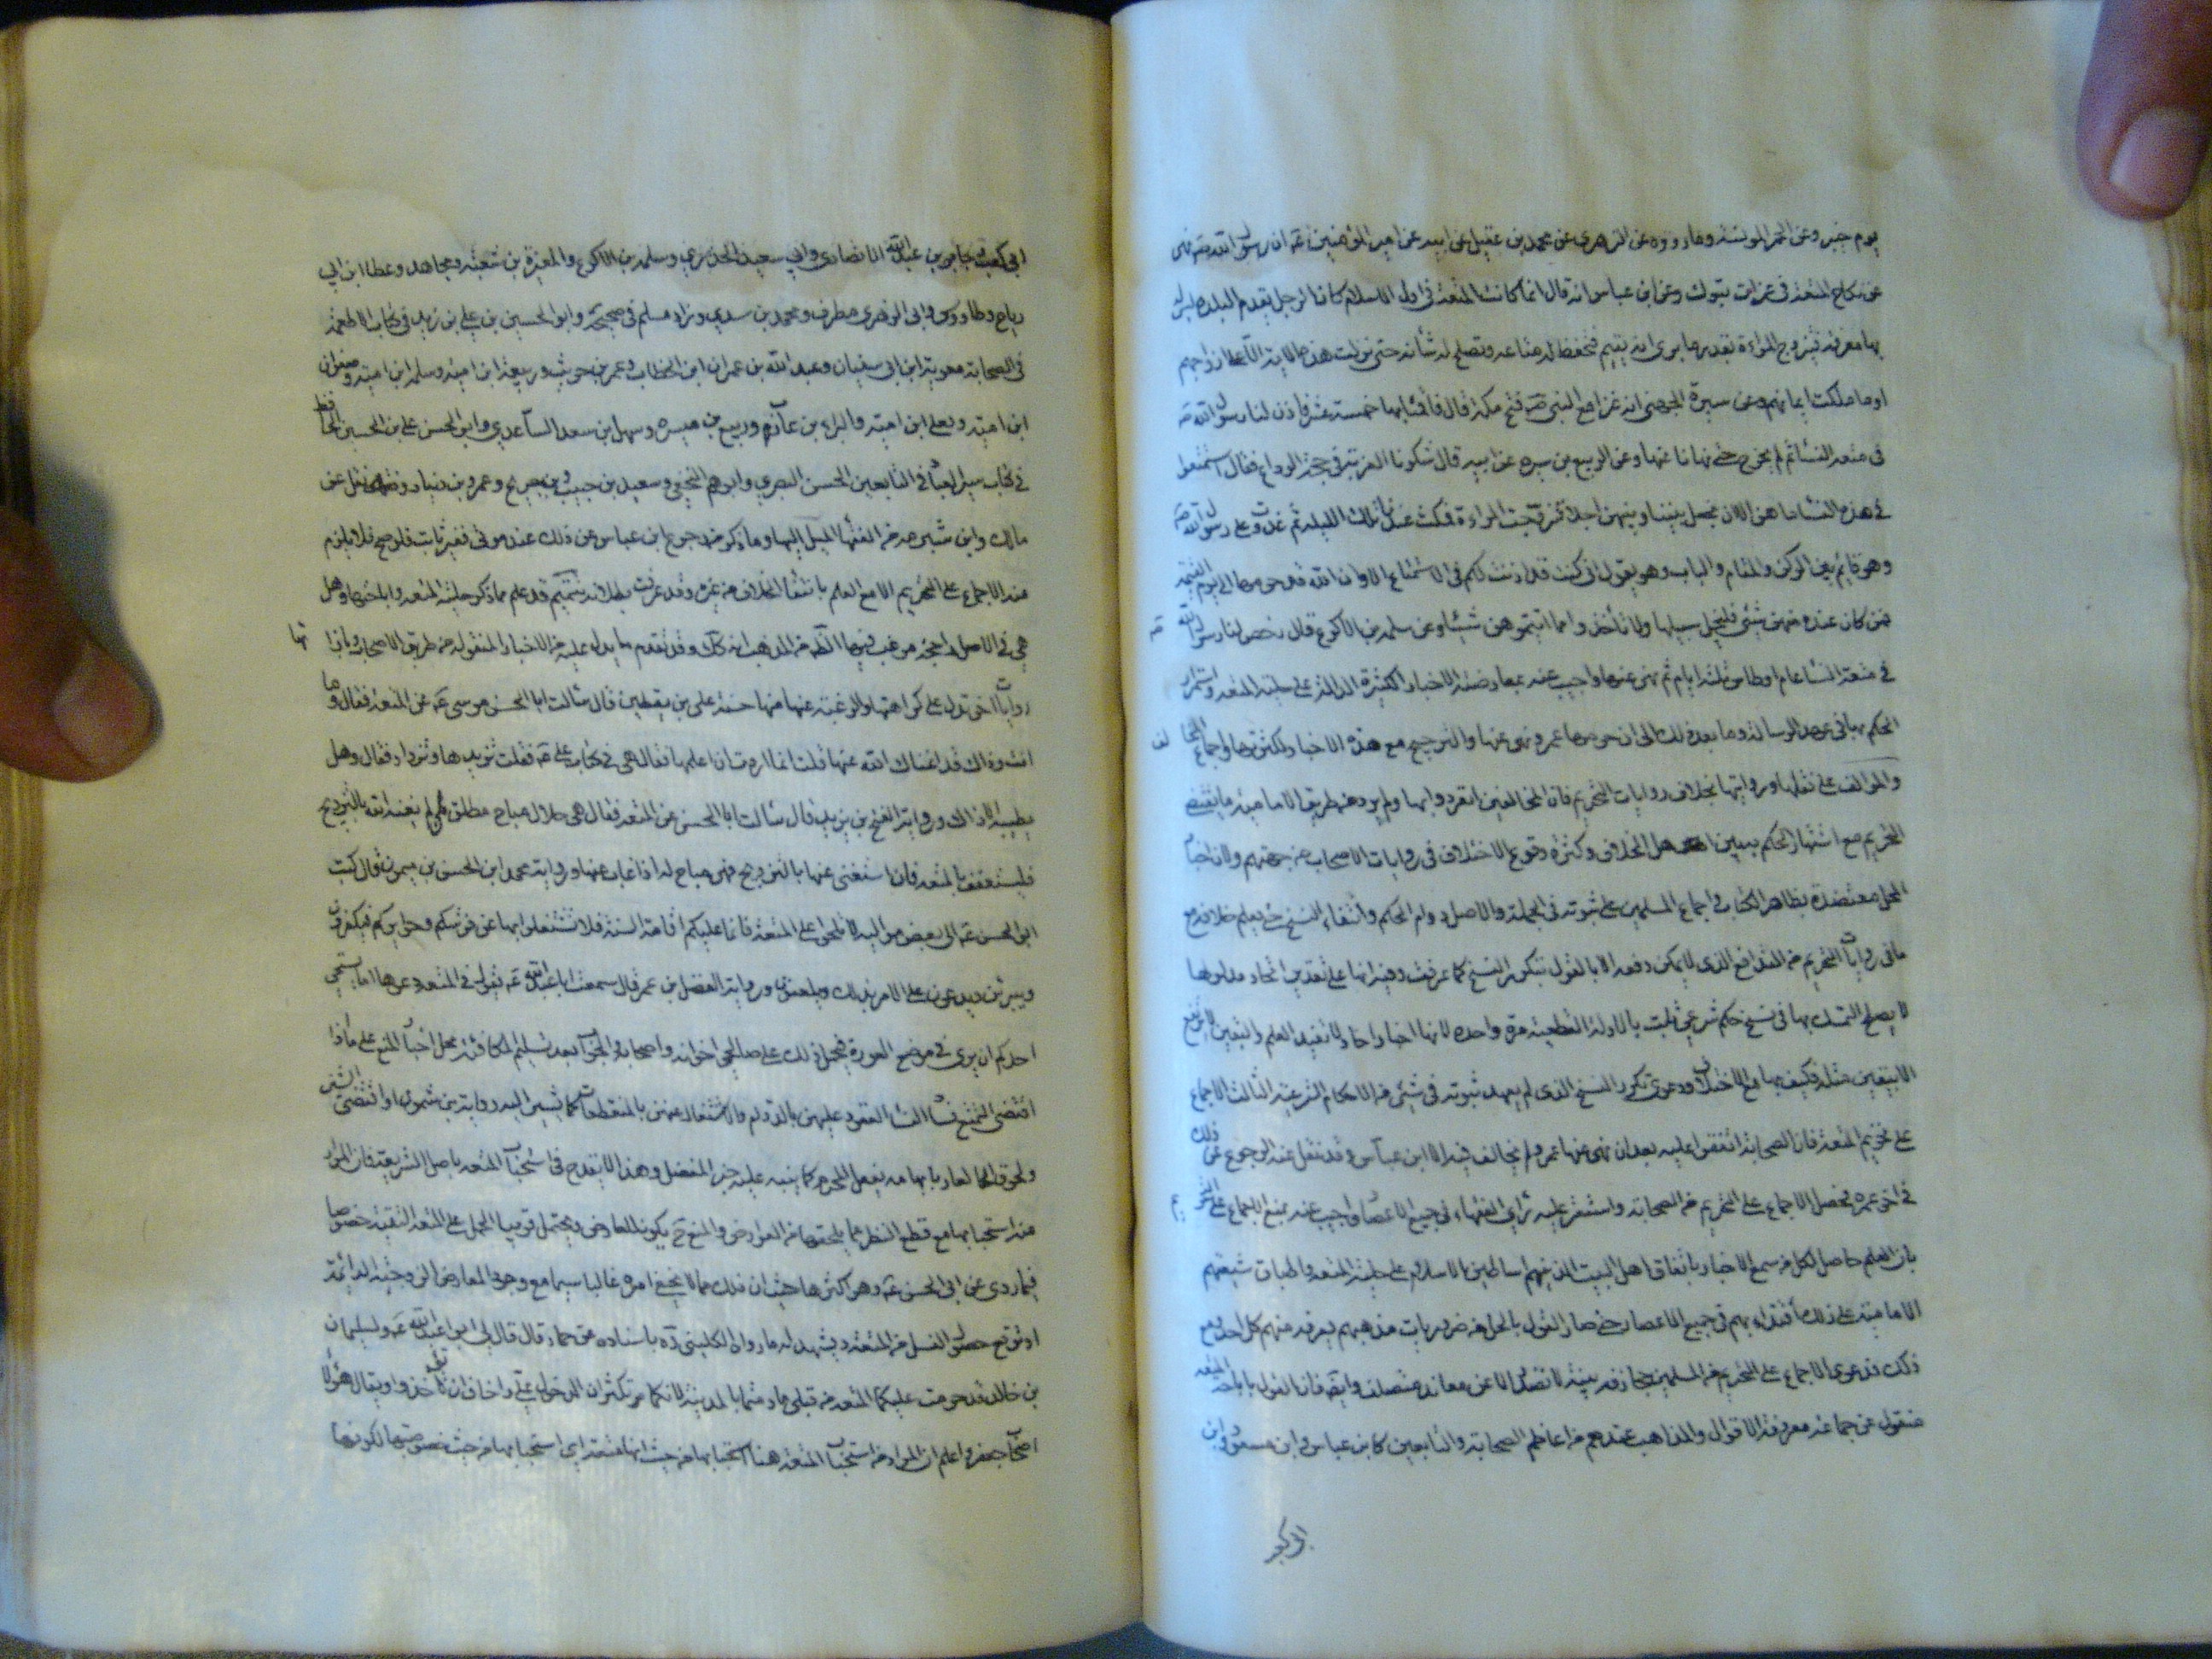 يوم خيبر وعن الحمر المونسة وما رووه عن الزهري عن محمد بن عقيل عن ابيه عن امير المؤمنين ان رسول الله نهى
عن نكاح المتعة في غزاة تبوك وعن ابن عباس انه قال انما كانت المتعة في اول الاسلام كان الرجل يقدم البلده ليس له
بها معرفة فيتزوج المراءة بقدر ما يرى انه يقيم فتحفظ له متاعه وتصلح له شأنه حتى نزلت هذه الاية الا على ازواجهم
او ما ملكت ايمانهم وعن سبرة الجهني انه غزا مع النبي فتح مكة قال فاقمنا بها خمسة عشر فاذن لنا رسول الله
في متعة النسا ثم لم يخرج حتى نهانا عنها وعن الربيع بن سبره عن ابيه قال شكونا العزبة في حجة الوداع فقال استمتعوا
في هذه النسا الا ان يجعل بيننا وبينهن اجلا فتزوجت امراءة فمكثت عندها تلك الليلة ثم غدوت على رسول الله
وهو قايم بين الركن والمقام والباب وهو يقول اني كنت قد اذنت لكم في الاستمتاع الا وان الله قد حرمها الى يوم القيمة
فمن كان عنده منهن شيئ فليخل سبيلها ولا تأخذوا مما اتيتموهن شيئا وعن سلمة بن الاكوع قال رخص لنا رسول الله
في متعة النسا عام اوطاس ثلثة ايام ثم نهى عنها واجيب عنه بمعارضة الاخبار الكثيرة الدالة على حلية المتعة واستمرار
الحكم بها في عهد الرسالة وما بعد ذلك الى ان حرمها عمر ونهى عنها والترجيح مع هذه الاخبار لكثرتها واجماع المخالف
والموالف على نقلها وروايتها بخلاف روايات التحريم فان المخالفين انفردوا بها ولم يرد من طريق الامامية ما يقتضي
التحريم مع اشتهار الحكم بين اهل الخلاف وكثرة وقوع الاختلاف في روايات الاصحاب من جهتهم ولان اخبار
الحل معتضدة بظاهر الكتاب واجماع المسلمين على ثبوته في الجملة والاصل دوام الحكم وانتفاء النسخ حتى يعلم خلافه مع
ما في روايات التحريم من التدافع الذي لا يمكن دفعه الا بالقول بتكرر النسخ كما عرفت وغيرانها على تقدير اتحاد مدلولها
لا يصلح التمسك بها في نسخ حكم شرعي ثبت بالادلة القطعية مرة واحده لانها اخبار احاد لا تفيد العلم واليقين لا يرتفع
الا بيقين مثله فكيف بها مع الاختلاف ودعوى تكرر النسخ الذي لم يعهد ثبوته في شيئ من الاحكام الشرعية الثالث الاجماع
على تحريم المتعة فان الصحابة اتفقوا عليه بعد ان نهى عنها عمر ولم يخالف فيه الا ابن عباس وقد نقل عنه الرجوع عن ذلك
في اخر عمره فحصل الاجماع على التحريم من الصحابة واستقر عليه راي الفقهاء في جميع الاعصار واجيب عنه بمنع الاجماع على التحريم
بان العلم حاصل لكل من سمع الاخبار باتفاق اهل البيت الذين هم اساطين الاسلام على حلية المتعة واطباق شيعتهم
الامامية على ذلك اقتداء بهم في جميع الاعصار حتى صار القول بالحل من ضروريات مذهبهم يعرفه منهم كل احد ومع
ذلك فدعوى الاجماع على التحريم من المسلمين مجازفة بينة لا تصدر الا عن معاند متصلف وايضا فان القول باباحة المتعة
منقول عن جماعة معروفة الاقوال والمذاهب عندهم من اعاظم الصحابة والتابعين كابن عباس وابن مسعود وابن
ابي كعب وجابر بن عبد الله الانصاري وابي سعيد الخدري وسلمة بن الاكوع والمغيرة بن شعبة ومجاهد وعطا ابن ابي
رباح وطاووس وابي الزهري مطرف ومحمد بن سدي وزاد مسلم في صحيحه وابو الحسين بن علي بن زيد في كتاب الاطعمة
في الصحابة معوية ابن ابي سفيان وعبد الله بن عمر ابن الخطاب وعمرو بن حريث وربيعة ابن امية وسلمة ابن امية وصفوان
ابن امية ويعلى ابن امية والبراء بن عازب وربيع بن ميسره وسهل بن سعد الساعدي وابو الحسن علي بن الحسين الحافظ
في كتاب سير العباد في التابعين الحسن البصري وابرهيم النخعي وسعيد بن حبيب وابن جريج وعمرو بن دينار ونقل عن
مالك وابن شبرمه من الفقها الميل اليها وما ذكر من رجوع ابن عباس عن ذلك عند موته فغير ثابت فلو صح فلا يلزم
منه الاجماع على التحريم الا مع العلم بانتفا الخلاف من غيره وقد عرفت بطلانه تتميم قد علم مما ذكر حلية المتعة واباحتها وهل
هي في الاصل راجحة مرغب فيها الظ من المذهب انه كذلك وقد تقدم ما يدل عليه من الاخبار المنقولة من طريق الاصحاب وبازائها
روايات اخر تدل على كراهتها والرغبة عنها منها حسنة علي بن يقطين قال سألت ابا الحسن موسى عن المتعة فقال وما
انت وذاك قد اغناك الله عنها قلت انما اردت ان اعلمها فقال هي في كتاب علي فقلت نزيدها وتزداد فقال وهل
يطيبه الا ذاك ورواية الفتح بن يزيد قال سألت ابا الحسن عن المتعة فقال هي حلال مباح مطلق لمن لم يغنه الله بالتزويج
فليستعفف بالمتعة فان استغنى عنها بالتزويج فهي مباح له اذا غاب عنها ورواية محمد ابن الحسن بن ميمون قال كتب
ابو الحسن الى بعض مواليه لا تلحوا على المتعة فانما عليكم اقامة السنة فلا تشتغلوا بها عن فرشكم وحرايركم فيكفرن
ويبرئن ويدعون على الامر بذلك ويلعنونا ورواية المفضل بن عمر قال سمعت ابا عبد الله يقول في المتعة دعوها اما يستحي
احدكم ان يرى في موضع العورة فيحمل ذلك على صالحي اخوانه واصحابه والجواب بعد تسليم المكافئة بحمل اخبار المنع على ما اذا
اقتضى التمتع فساد النساء المعقود عليهن بالدوام والاشتغال عنهن بالمنقطعات كما يشير اليه رواية بن شمون او اقتضى الشين
ولحوق العار بها من يفعل المحرم كما ينبه عليه خبر المفضل وهذا لا يقدح في استحباب المتعة باصل الشريعة فان المراد
منه استحبابها مع قطع النظر عما يلحقها من العوارض والمنع ح يكون للعارض ويحتمل قويا الحمل على المتعة التقية خصوصا
فيما روي عن ابي الحسن وهو اكثرها حيث ان ذلك مما لا يخفى امره غالبا سيما مع وجود المعارض الزوجة الدائمة
او توقع حصول الغسل من المتعة ويشهد له ما رواه الكليني باسناده عن عمار قال قال لي ابو عبد الله ولسليمان
بن خالد قد حرمت عليكما المتعة من قبلي ما دمتما بالمدينة لانكما تكثران الدخول علي واخاف ان تؤخذوا ويقال هؤلاء
اصحاب جعفر واعلم ان المراد من استحباب المتعة هنا استحبابها من حيث انها متعة اي استحبابها من حيث خصوصيتها لكونها